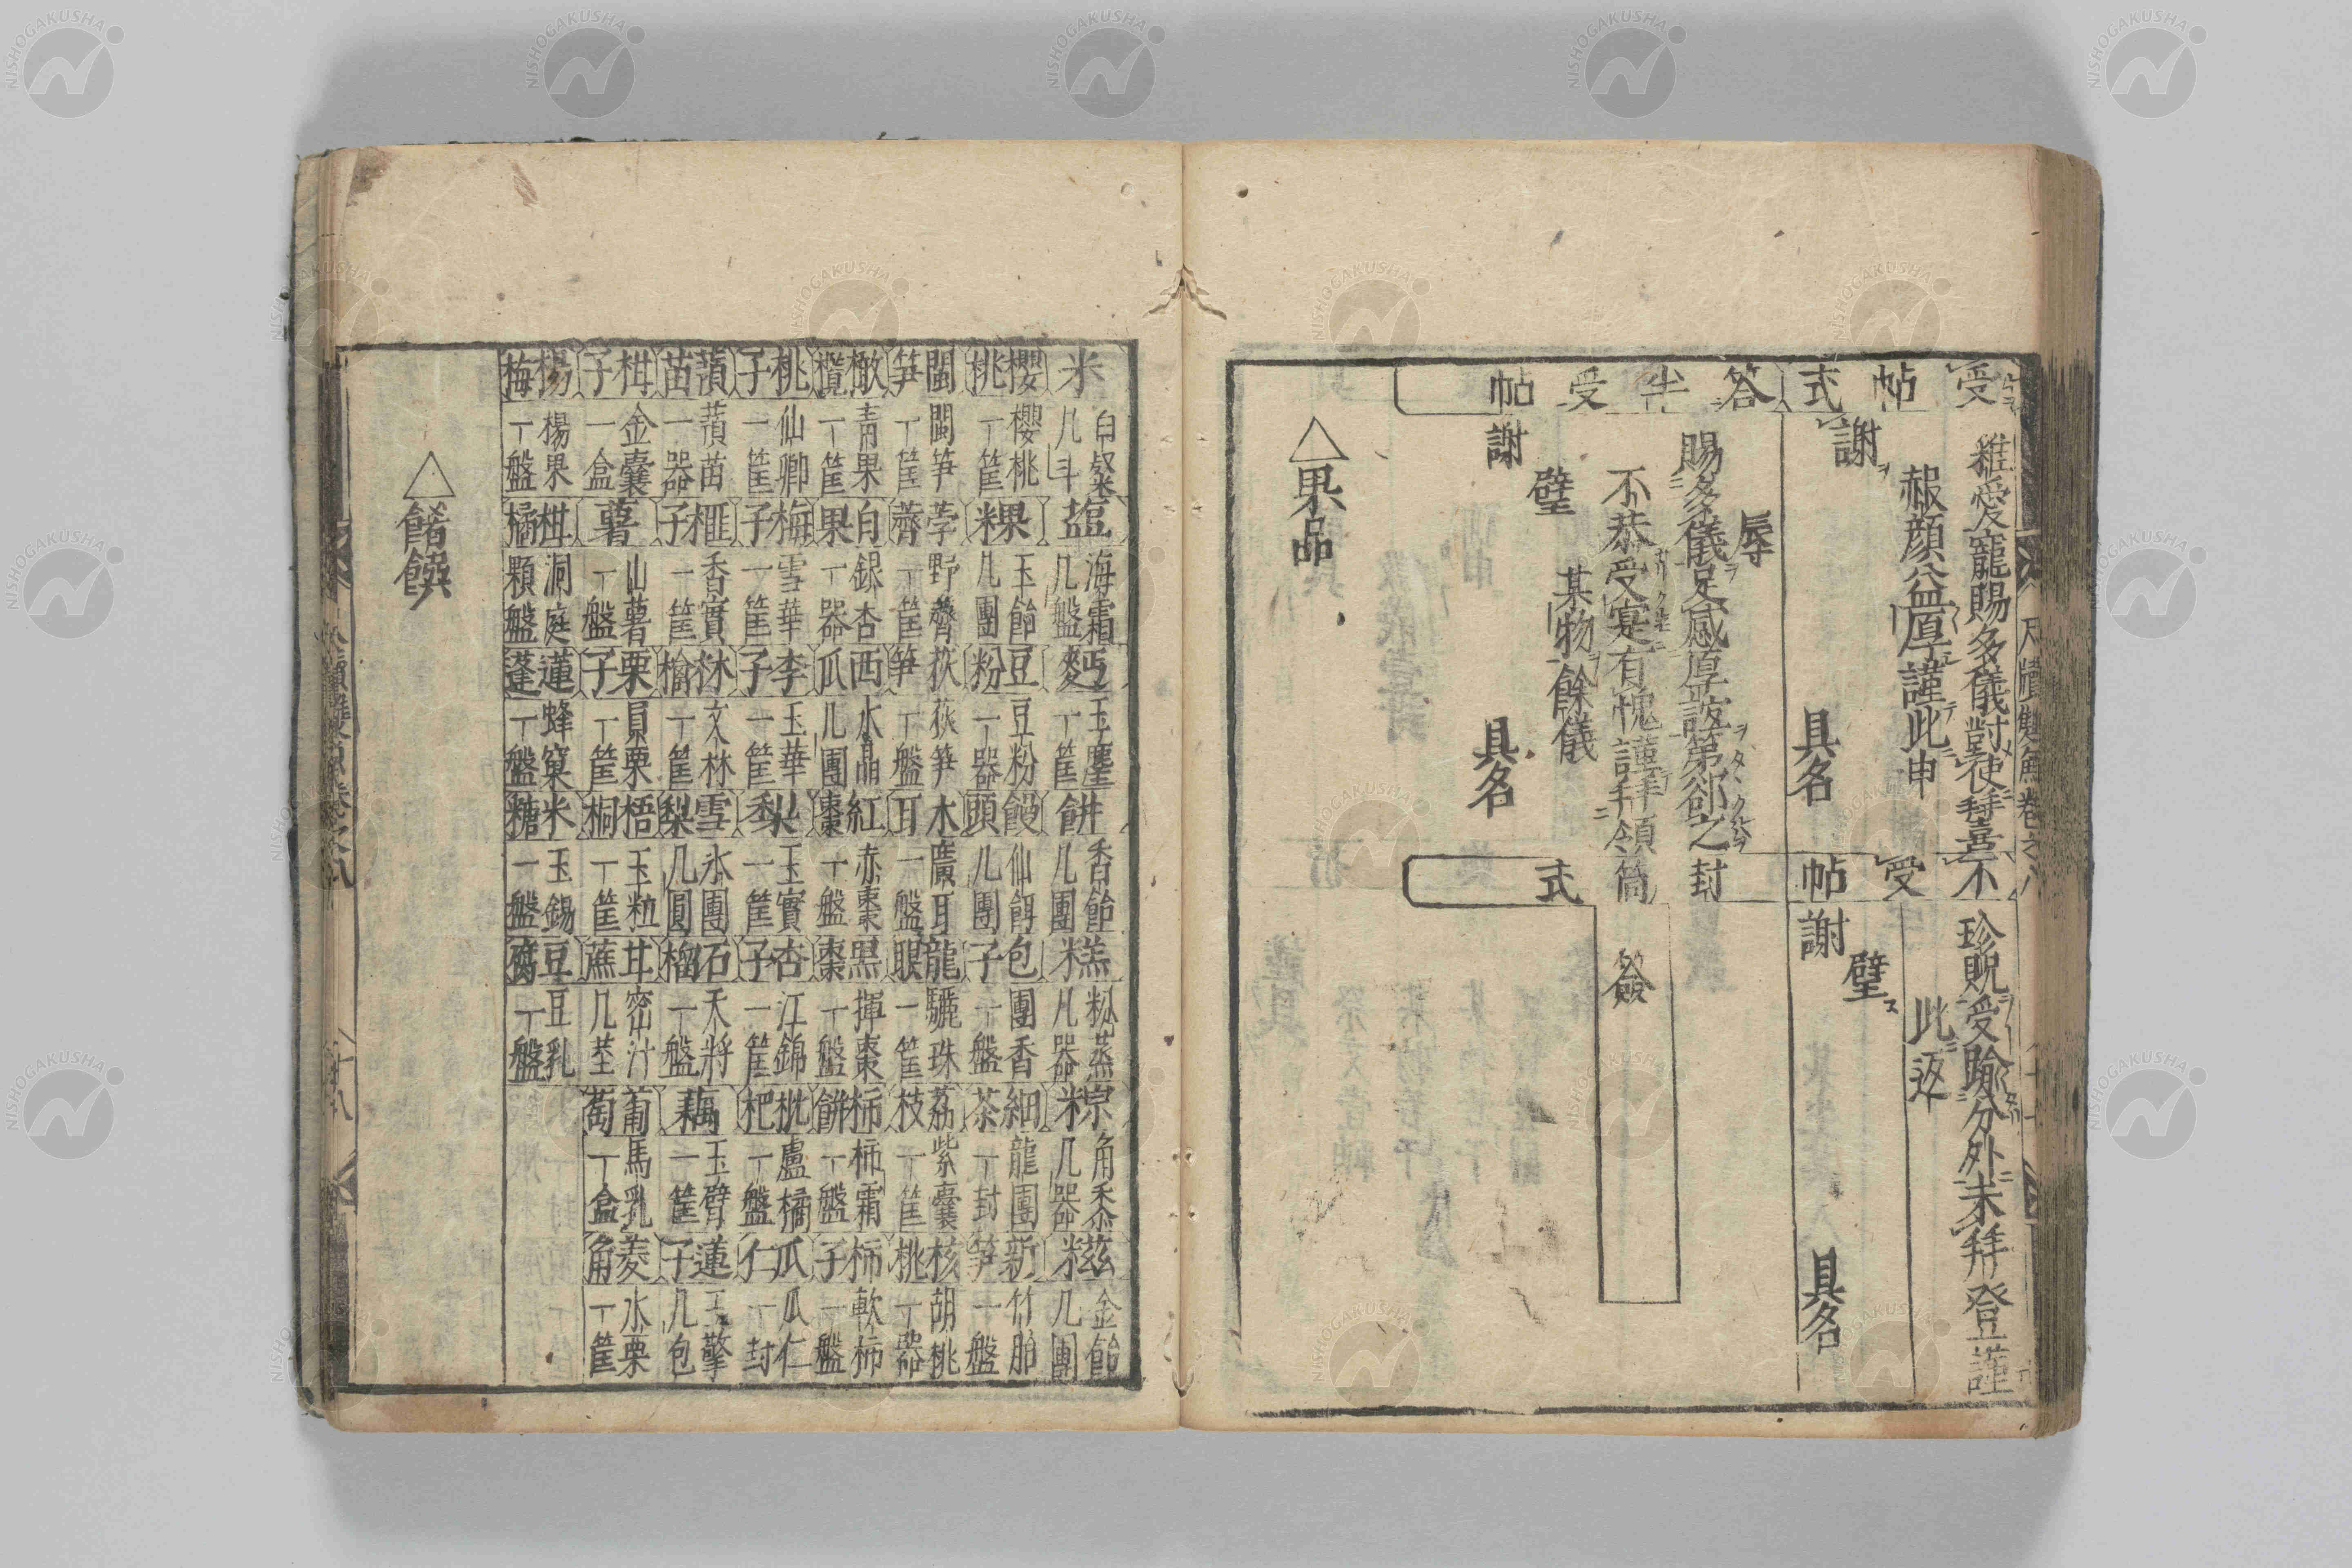 尺牘雙魚卷之八
受帖式
雅愛寵賜多儀對使拜嘉不
赧顔益厚謹此申
謝
具名
答半受帖
辱
賜多儀足感厚誼第郤之
不恭受寔有愧謹拜領
璧
某物餘儀
謝
具名
不受帖
珍貺受踰分外未拜登謹
此返
璧
謝
具名
封筒式
簽
△果品
米 白粲几斗
塩 海霜几盤
麪 玉塵一筐
餅 香飴几團
糕 粉蒸几器
粽 角黍几器
糍 金飴几團
櫻桃 櫻桃一筐
粿 玉飴几團
豆粉 豆粉一器
饅頭 仙餌几團
包子 團香一盤
細茶 龍團一封
新笋 竹胎一盤
閩笋 閩笋一筐
荸薺 野薺一筐
荻笋 荻笋一盤
木耳 廣耳一盤
龍眼 驪珠一筐
荔枝 紫囊一筐
核桃 胡桃一器
橄欖 青果一筐
白果 銀杏一器
西瓜 水晶几團
紅棗 赤棗一盤
黑棗 揮棗一盤
柿餅 柿霜一盤
柿子 軟柿一盤
桃子 仙卿一筐
梅子 雪華一筐
李子 玉華一筐
梨 玉實一筐
杏子 江錦一筐
枇杷 盧橘一盤
瓜仁 瓜仁一封
蘋苗 蘋苗一器
榧子 香實一筐
林檎 文林一筐
雪梨 氷團几圓
石榴 天將一盤
藕 玉臂一筐
蓮子 玉擎几包
柑子 金囊一盒
薯 山薯一盤
栗子 員栗一筐
梧桐 玉粒一筐
甘蔗 密汁几莖
葡萄 馬乳一盒
菱角 水栗一筐
楊梅 楊果一盤
柑橘 洞庭顆盤
蓮蓬 蜂窠一盤
米糖 玉錫一盤
豆腐 豆乳一盤
△餚饌